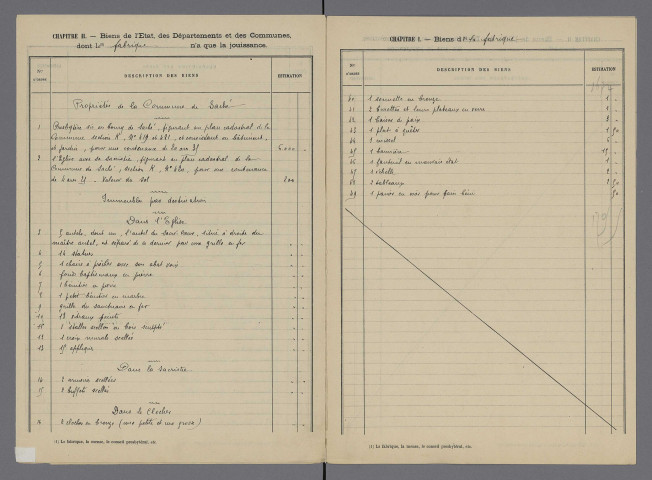 CHAPITRE II. — Biens de l'Etat, des Départements et des Communes,
dont la fabrique n'a que la jouissance.
DESCRIPTION DES BIENS
ESTIMATION
Propriétés de la Commune de
1 Presbytère sis au bourg de figurant au plan cadastral de la
Commune section K, Nos 419 et 421, et consistant en bâtiment
et jardin, pour une contenance de 20 ares 35 6.000
2 L'Eglise avec sa sacristie, figurant au plan cadastral de la
Commune de section K, No 420, pour une contenance
de ares Valeur du sol 200
Immeubles par destination
Dans l'Eglise
3 5 autels, dont un, l'autel du Sacré-Coeur, situé à droite du
maître autel, et séparé de ce dernier par une grille en fer
4 14 statues
5 1 chaire à prêcher avec son abat voix
6 fonts baptismaux en pierre
7 1 bénitier en
8 1 petit bénitier en marbre
9 grille du sanctuaire en fer
10 13 vitraux peints
11 stalles en bois
12 1 croix murale scellée
13 appliques
Dans la Sacristie
14 2 armoires scellées
15 2 buffets scellés
Dans le Clocher
16 2 cloches en bronze (une petite et une grosse)
(1) La fabrique, la mense, le conseil presbytéral, etc.
CHAPITRE I. — Biens de la fabrique
DESCRIPTION DES BIENS
ESTIMATION
40 1 sonnette en bronze 1
41 2 burettes et leurs plateaux en verre
42 1 caisse de 3
43 1 plat à quêter 1 50
44 1 missel
45 1 bannière 15
46 1 fauteuil en mauvais état 1
47 1 échelle 2
48 2 tableaux 2 50
49 1 panier en osier pour pain béni 50
(1) La fabrique, la mense, le conseil presbytéral, etc.